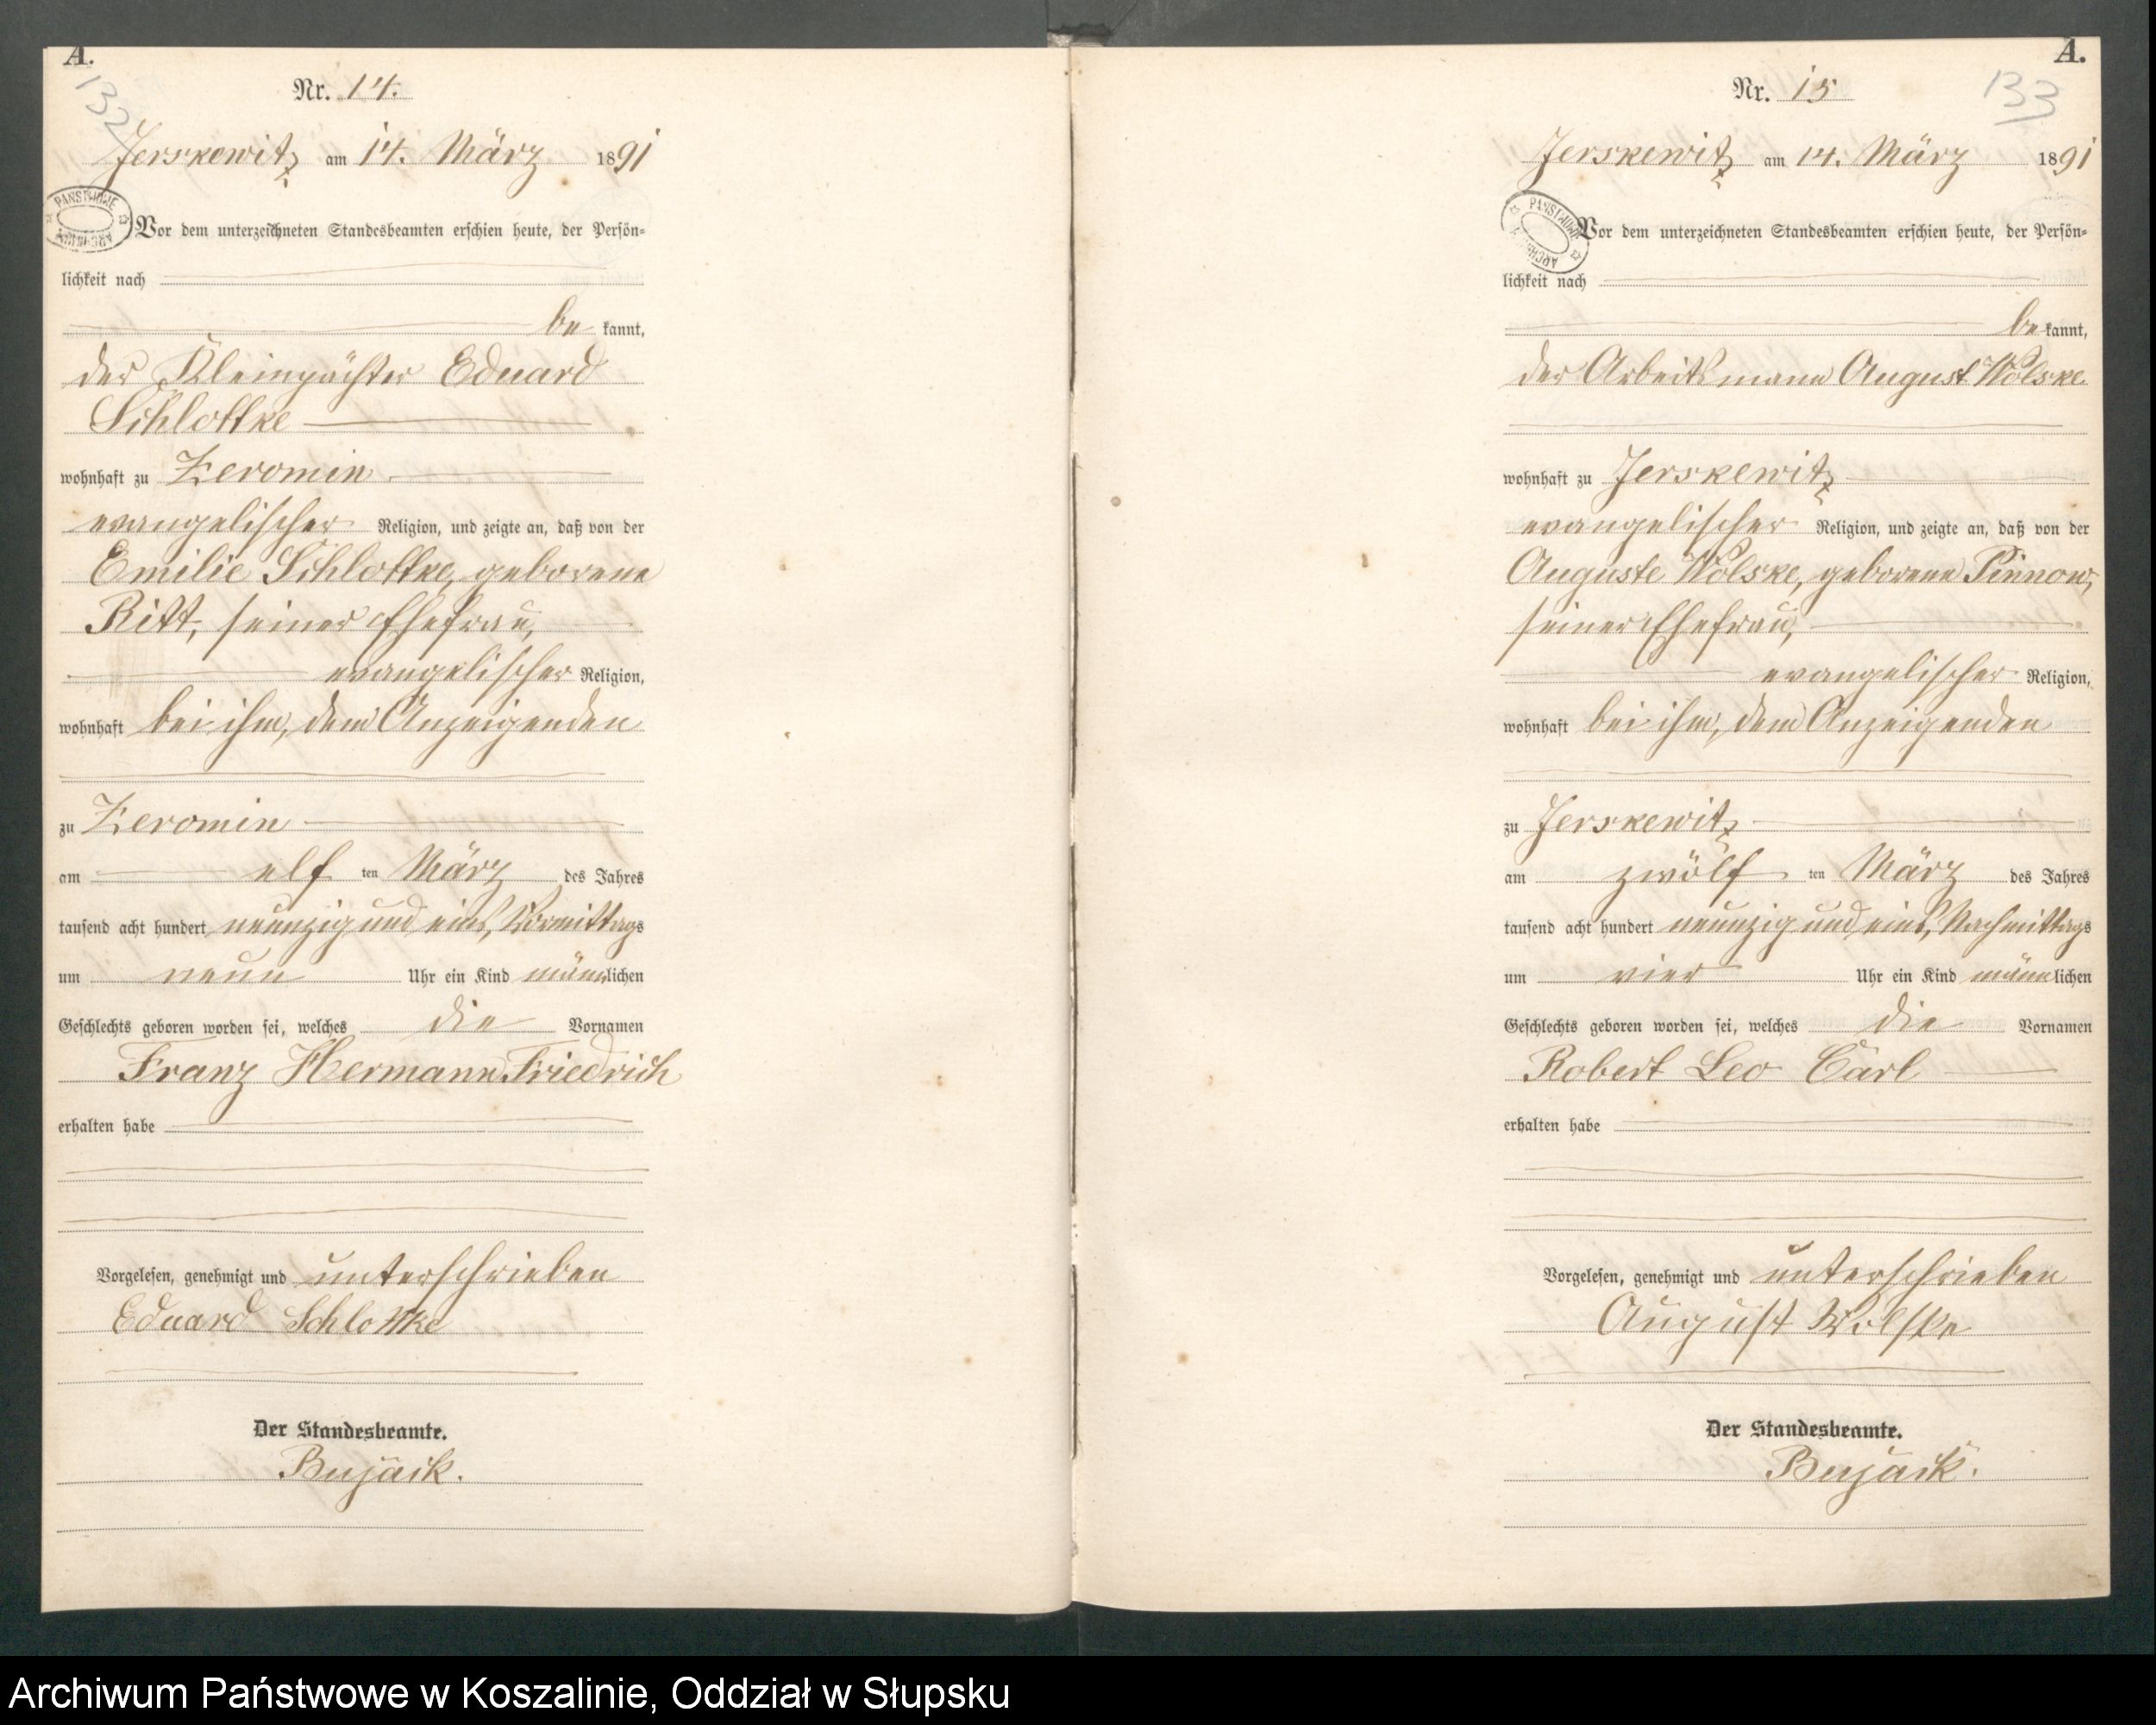 A.
132
Nr. 14.
Jerskewitz am 14. März 1891
PAŃSTWOWE
ARCHIWUM
Vor dem unterzeichneten Standesbeamten erschien heute, der Persön-
lichkeit nach
be kannt,
der Kleinpächter Eduard
Schlottke
wohnhaft zu Zeromin
evangelischer Religion, und zeigte an, daß von der
Emilie Schlottke, geborene
Ritt, seiner Ehefrau,
evangelischer Religion,
wohnhaft bei ihm, dem Anzeigenden
zu Zeromin
am elf ten März des Jahres
tausend acht hundert neunzig und eins, Vormittags
um neun Uhr ein Kind männlichen
Geschlechts geboren worden sei, welches die Vornamen
Franz Hermann Friedrich
erhalten habe
Vorgelesen, genehmigt und unterschrieben
Eduard Schlottke
Der Standesbeamte.
Bujack.
A.
133
Nr. 15
Jerskewitz am 14. März 1891
PAŃSTWOWE
ARCHIWUM
Vor dem unterzeichneten Standesbeamten erschien heute, der Persön-
lichkeit nach
be kannt,
der Arbeitsmann August Wolske
wohnhaft zu Jerskewitz
evangelischer Religion, und zeigte an, daß von der
Auguste Wolske, geborene Pinnow,
seiner Ehefrau,
evangelischer Religion,
wohnhaft bei ihm, dem Anzeigenden
zu Jerskewitz
am zwölf ten März des Jahres
tausend acht hundert neunzig und eins, Nachmittags
um vier Uhr ein Kind männlichen
Geschlechts geboren worden sei, welches die Vornamen
Robert Leo Carl
erhalten habe
Vorgelesen, genehmigt und unterschrieben
August Wolske
Der Standesbeamte.
Bujack.
Archiwum Państwowe w Koszalinie, Oddział w Słupsku